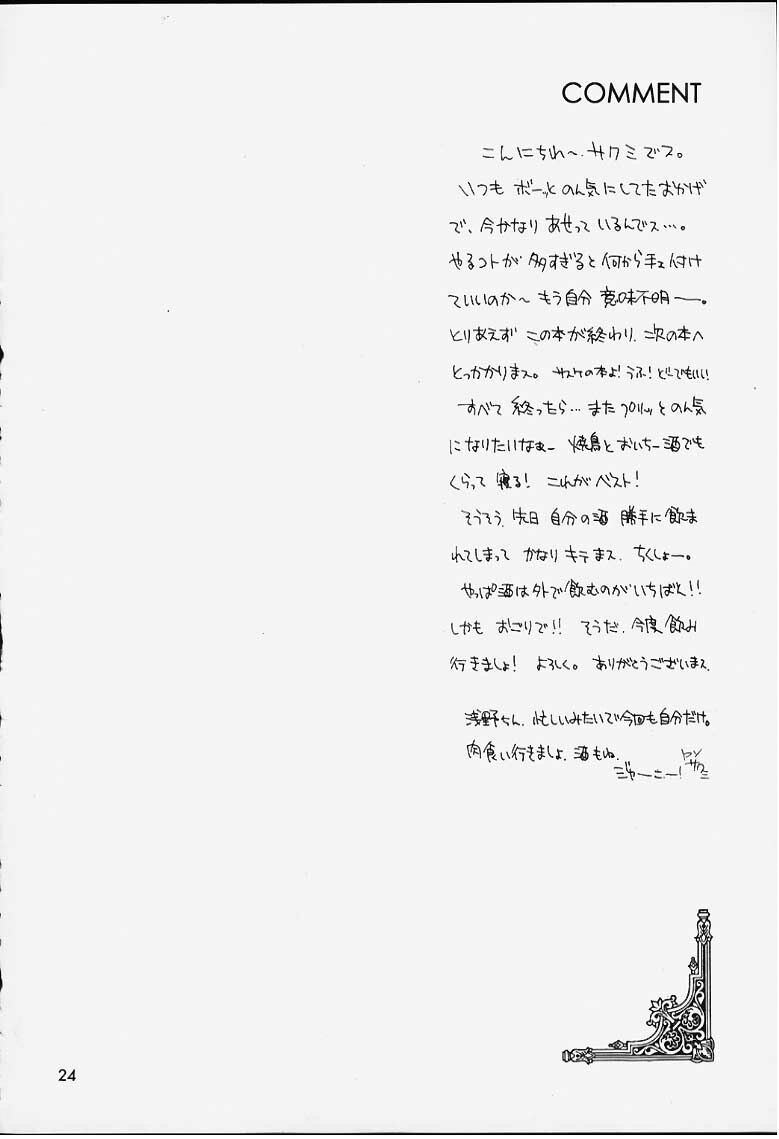 COMMENT
こんにちわ〜.サクミでス。
いつも ボーッと のん気にしてたおかげ
で、今かなり あせって いるんでス…。
やるコトが 多すぎると 何から手ェ付け
ていいのか〜 もう自分 意味不明ー。
とりあえず この本が終わり、次の本へ
とっかかりまス。 サスケの本よ!うふ!どーでもいい
すべて 終ったら… また プリッと のん気
になりたいなぁー 焼鳥と おいちー酒でも
くらって 寝る! これが ベスト!
そうそう、先日 自分の酒 勝手に飲ま
れてしまって かなり キテまス. ちくしょー。
やっぱ酒は外で飲むのがいちばん!!
しかも おごりで!! そうだ、今度飲み
行きましょ! よろしく。 ありがとうございまス.
浅野ちん、忙しいみたいで今回も自分だけ。
肉食い行きましょ. 酒もね.
じゃーねー! サクミ
24